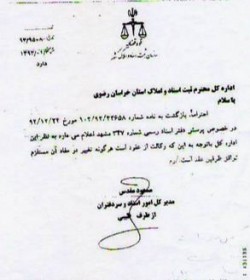 قوه قضائیه
سازمان ثبت اسناد و املاک کشور
دارد
اداره کل محترم ثبت اسناد و املاک استان خراسان رضوی
با سلام
احتراماً، بازگشت به نامه شماره ۱۰۲/۹۲/۳۳۶۵۸ مورخ ۹۲/۱۲/۲۴
در خصوص پرسش دفتر اسناد رسمی شماره ۳۴۷ مشهد اعلام می دارد به نظر این
اداره کل باتوجه به این که وکالت از عقود است هرگونه تغییر در مفاد آن مستلزم
توافق طرفین عقد است.
مسعود مقدس
مدیر کل امور اسناد و سردفتران
از طرف